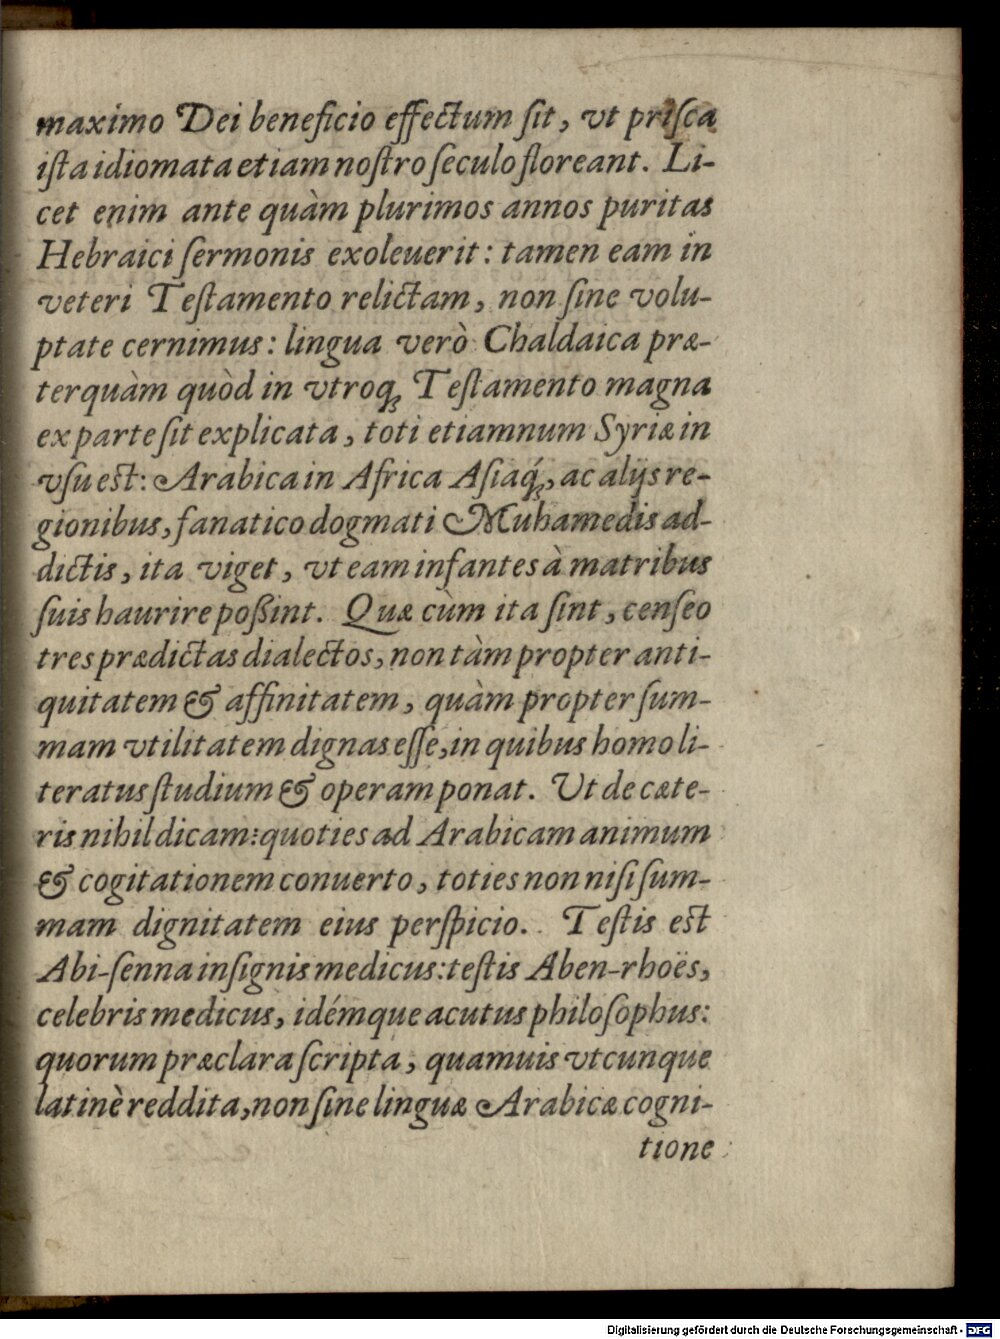 maximo Dei beneficio effectum ſit, vt priſca
iſta idiomata etiam noſtro ſeculo floreant. Li-
cet enim ante quàm plurimos annos puritas
Hebraici ſermonis exoleuerit: tamen eam in
veteri Teſtamento relictam, non ſine volu-
ptate cernimus: lingua verò Chaldaica præ-
terquàm quòd in vtroq́; Teſtamento magna
ex parte ſit explicata, toti etiamnum Syriæ in
vſu eſt: Arabica in Africa Aſiaq́;, ac alijs re-
gionibus, fanatico dogmati Muhamedis ad-
dictis, ita viget, vt eam infantes à matribus
ſuis haurire poßint. Quæ cùm ita ſint, cenſeo
tres prædictas dialectos, non tàm propter anti-
quitatem & affinitatem, quàm propter ſum-
mam vtilitatem dignas eſſe, in quibus homo li-
teratus ſtudium & operam ponat. Ut de cæte-
ris nihil dicam: quoties ad Arabicam animum
& cogitationem conuerto, toties non niſi ſum-
mam dignitatem eius perſpicio. Teſtis eſt
Abi-ſenna inſignis medicus: teſtis Aben-rhoës,
celebris medicus, idémque acutus philoſophus:
quorum præclara ſcripta, quamuis vtcunque
latinè reddita, non ſine linguæ Arabicæ cogni-
tione
Digitalisierung gefördert durch die Deutsche Forschungsgemeinschaft - DFG